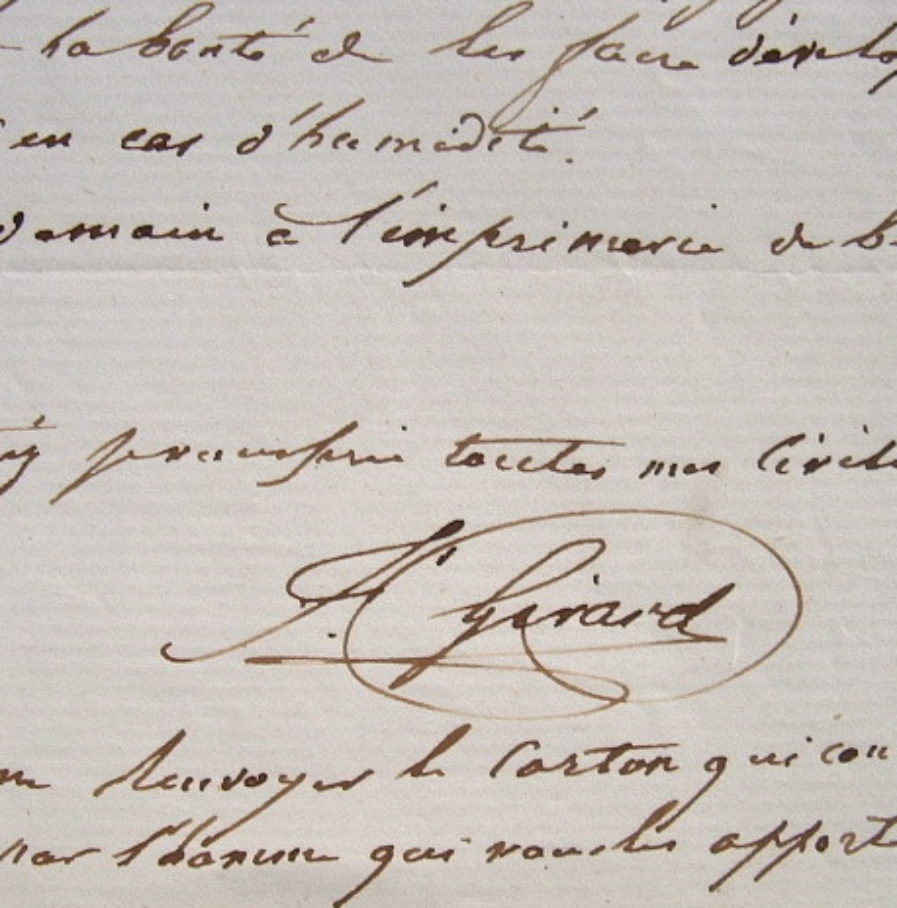 la bonté de les faire dévelop
en cas d'humidité.
demain à l'imprimerie de
toutes mes Civili
Girard
renvoyer le Carton qui con
par l'homme qui vous les apporte